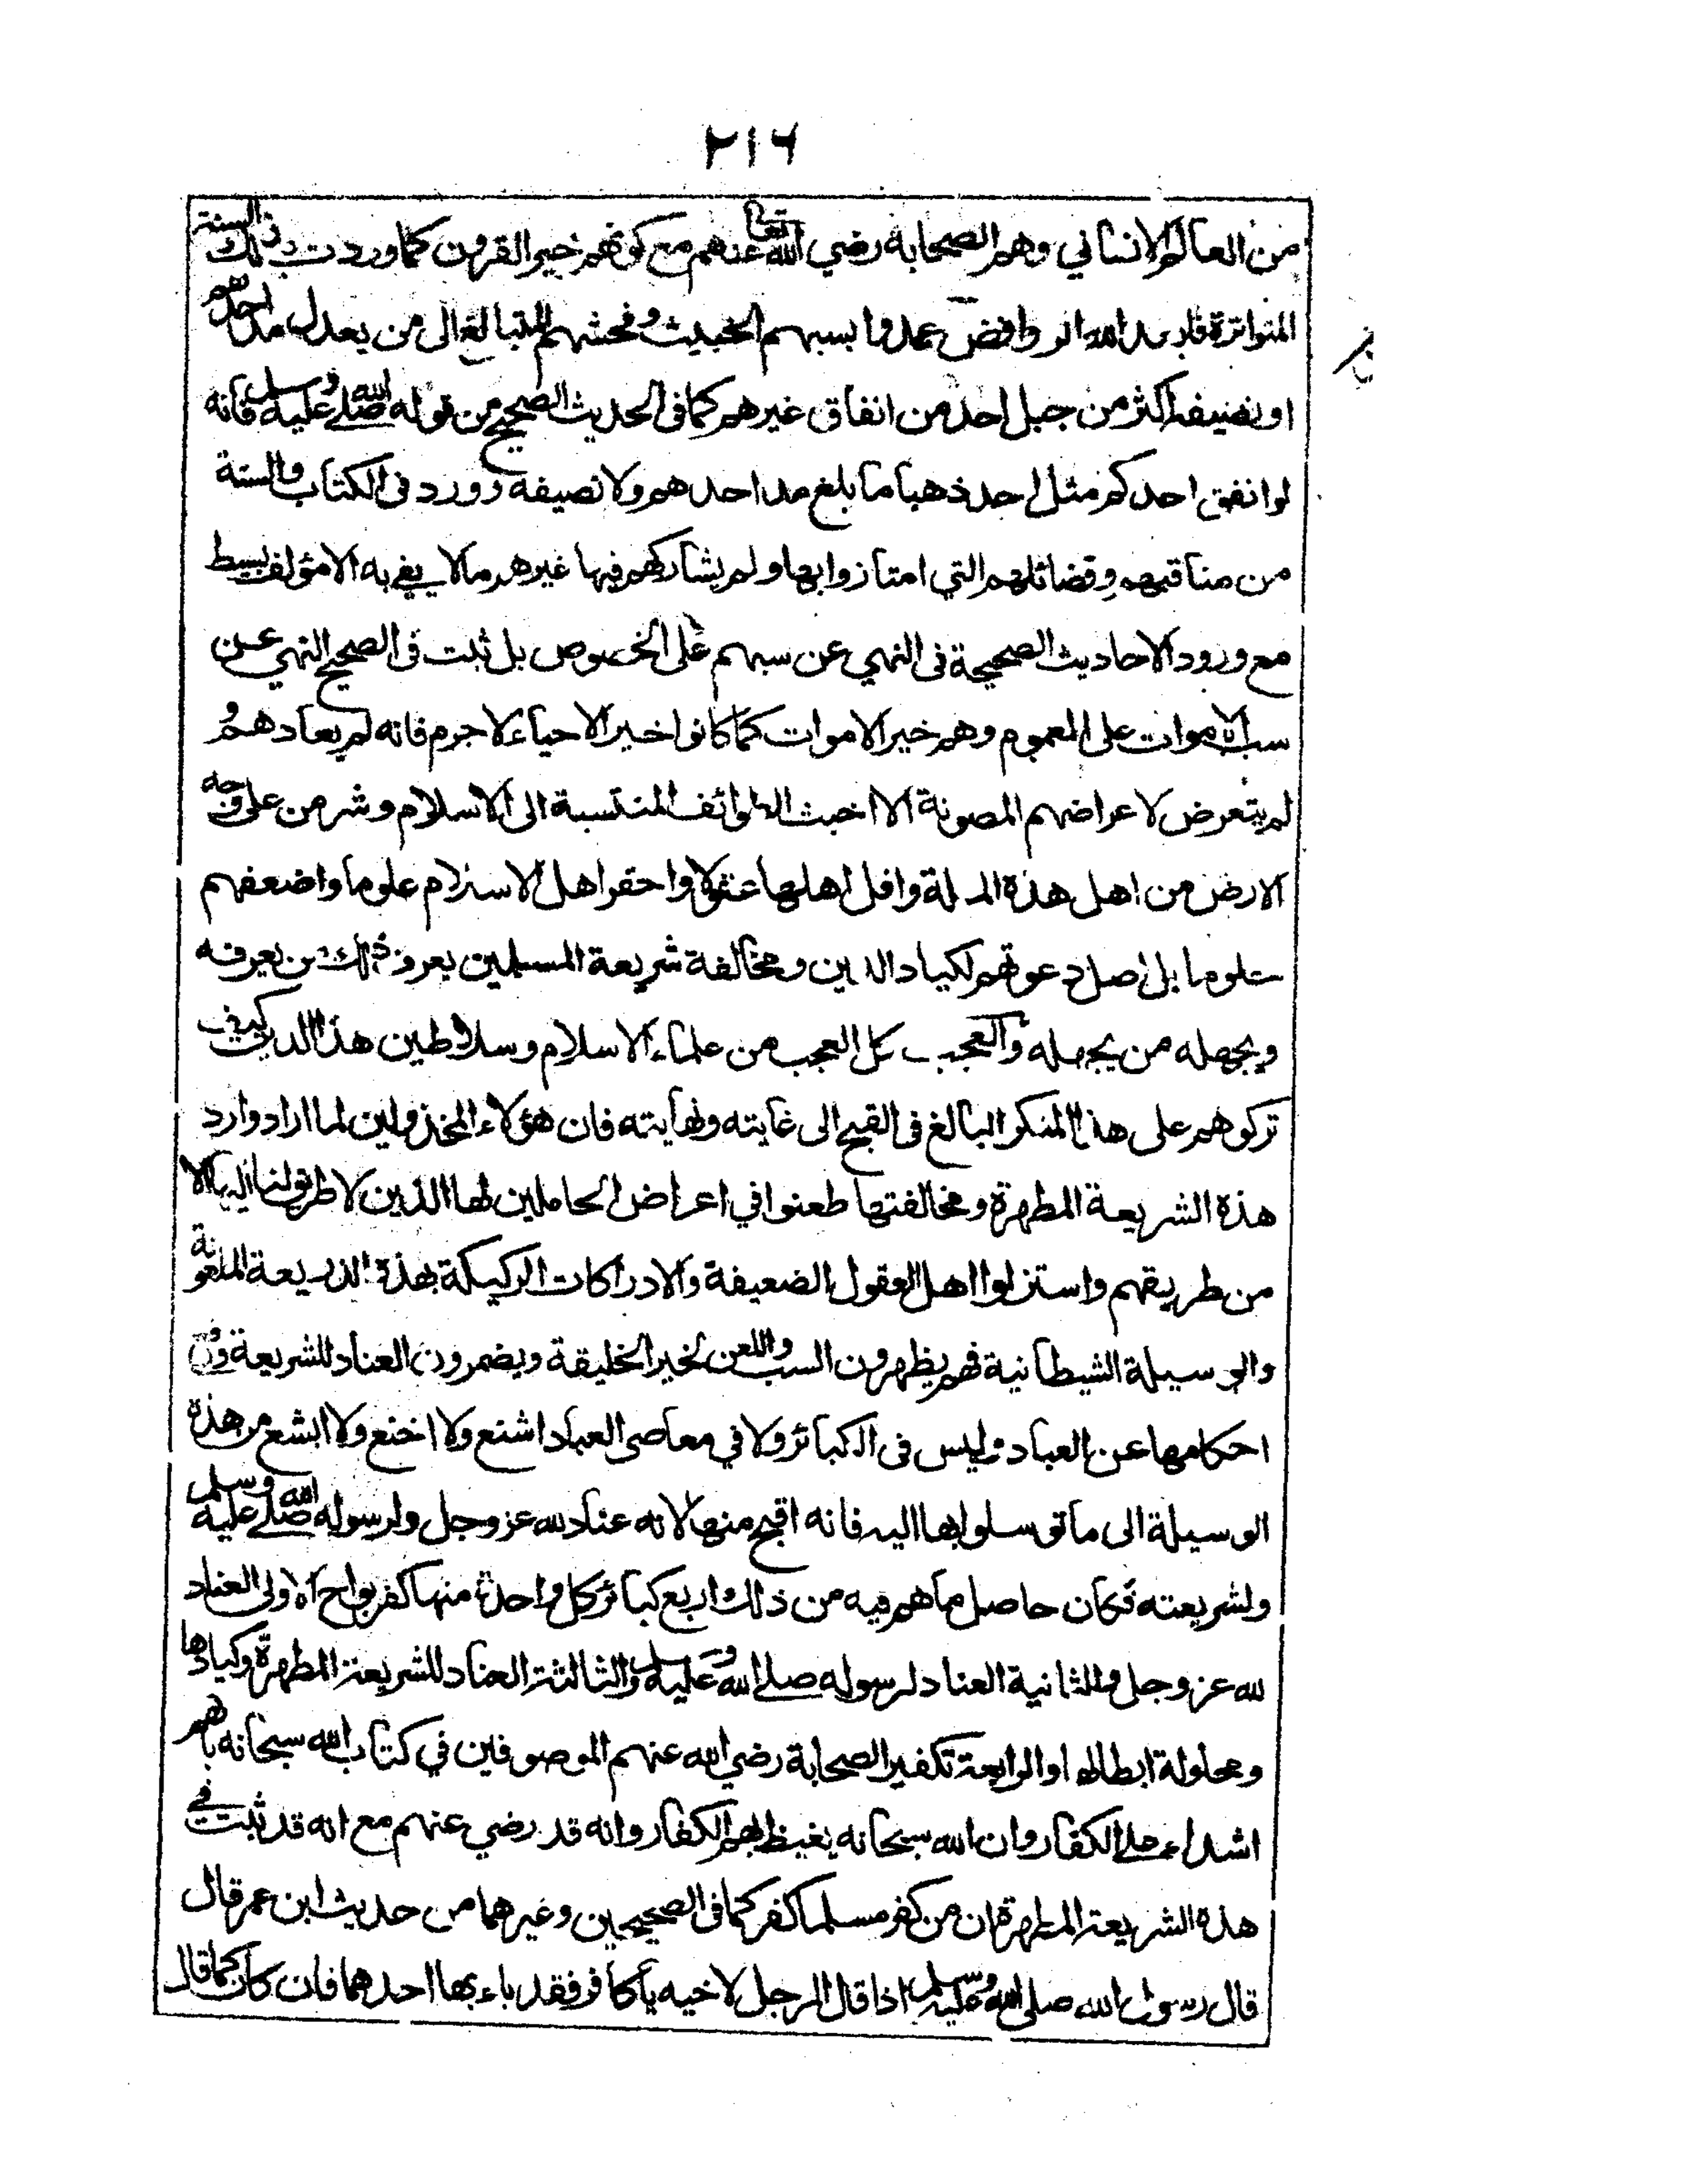 ٢١٦
من العالم الانساني وهم الصحابة رضي الله تعالى عنهم مع كونهم خير القرون كما وردت بذلك السنة
المتواترة فابعد الله الروافض عمدوا بسبهم الخبيث وفحشهم المتبالغ الى من يعدل مد احدهم
او نصيفه اكثر من جبل احد من انفاق غيرهم كما في الحديث الصحيح من قوله صلى الله عليه وسلم فانه
لو انفق احدكم مثل احد ذهبا ما بلغ مد احدهم ولا نصيفه وورد في الكتاب والسنة
من مناقبهم وفضائلهم التي امتازوا بها ولم يشاركهم فيها غيرهم ما لا يفي به الا مؤلف بسيط
مع ورود الاحاديث الصحيحة في النهي عن سبهم على الخصوص بل ثبت في الصحيح النهي عن
سب الاموات على العموم وهم خير الاموات كما كانوا خير الاحياء لا جرم فانه لم يعادهم و
لم يتعرض لاعراضهم المصونة الا اخبث الطوائف المنتسبة الى الاسلام وشر من على وجه
الارض من اهل هذه الملة واقل اهلها عقولا واحقر اهل الاسلام علوما واضعفهم
حلوما بل اصل دعوتهم لكياد الدين ومخالفة شريعة المسلمين يعرف ذلك من يعرفه
ويجهله من يجهله والعجب كل العجب من علماء الاسلام وسلاطين هذا الدين كيف
تركوهم على هذا المنكر البالغ في القبح الى غايته ونهايته فان هؤلاء المخذولين لما ارادوا رد
هذه الشريعة المطهرة ومخالفتها طعنوا في اعراض الحاملين لها الذين لا طريق لنا اليها الا
من طريقهم واستزلوا اهل العقول الضعيفة والادراكات الركيكة بهذه الذريعة الملعونة
والوسيلة الشيطانية فهم يظهرون السب واللعن لخير الخليقة ويضمرون العناد للشريعة ورفع
احكامها عن العباد وليس في الكبائر ولا في معاصي العباد اشنع ولا اخنع ولا ابشع من هذه
الوسيلة الى ما توسلوا بها اليه فانه اقبح منها لانه عناد لله عز وجل ولرسوله صلى الله عليه وسلم
ولشريعته فكان حاصل ما هم فيه من ذلك اربع كبائر كل واحدة منها كفر بواح الاولى العناد
لله عز وجل والثانية العناد لرسوله صلى الله عليه وسلم والثالثة العناد للشريعة المطهرة وكيادها
ومحاولة ابطالها والرابعة تكفير الصحابة رضي الله عنهم الموصوفين في كتاب الله سبحانه بانهم
اشداء على الكفار وان الله سبحانه يغيظ بهم الكفار وانه قد رضي عنهم مع انه قد ثبت في
هذه الشريعة المطهرة ان من كفر مسلما كفر كما في الصحيحين وغيرهما من حديث ابن عمر قال
قال رسول الله صلى الله عليه وسلم اذا قال الرجل لاخيه يا كافر فقد باء بها احدهما فان كان كما قال